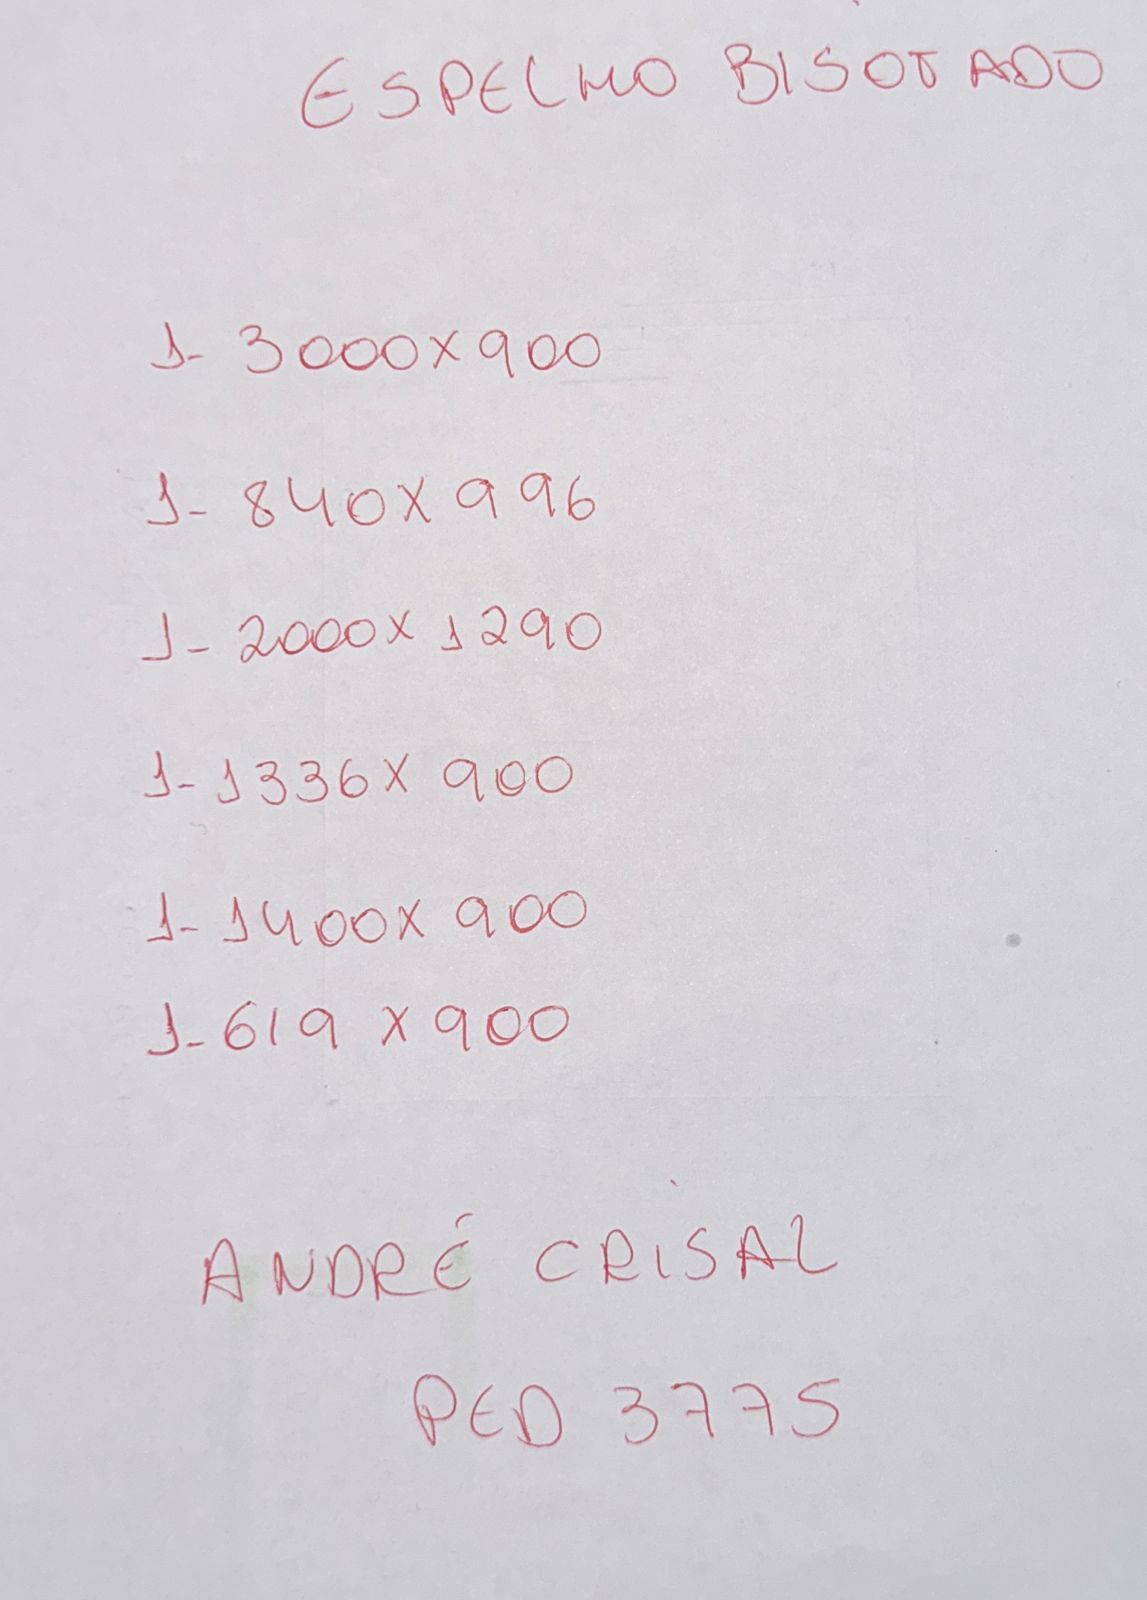 ESPELHO BISOTADO
1- 3000X900
1- 840X996
1- 2000X1290
1- 1336X900
1- 1400X900
1- 619 X900
ANDRÉ CRISAL
PED 3775